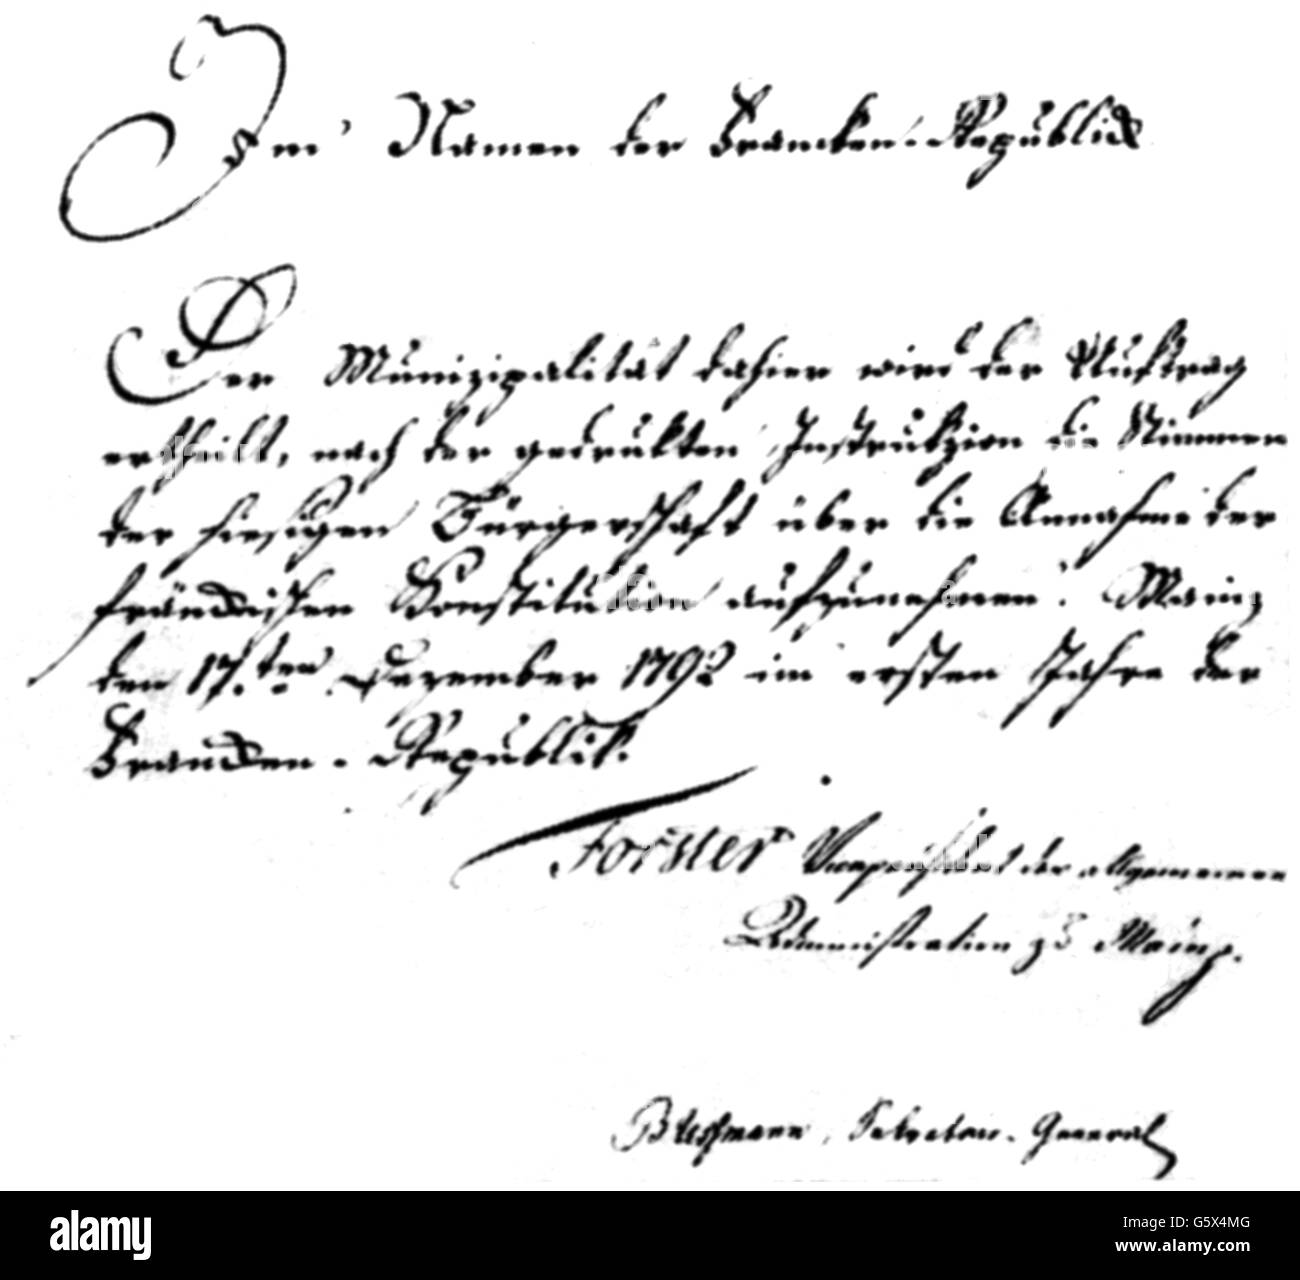 Im Namen der Francken-Republick
Der Munizipalität dahier wird der Auftrag
ertheilt, nach der gedrukten Instrukzion die Stimmen
der hiesigen Bürgerschaft über die Annahme der
fränckischen Konstitution aufzunehmen. Mainz
den 17.ten Dezember 1792 im ersten Jahre der
Francken-Republik.
Forster Vicepräsident der allgemeinen
Administration zu Mainz.
Bussmann, Sekretair-General
alamy
alamy
Image ID: G5X4MG
www.alamy.com